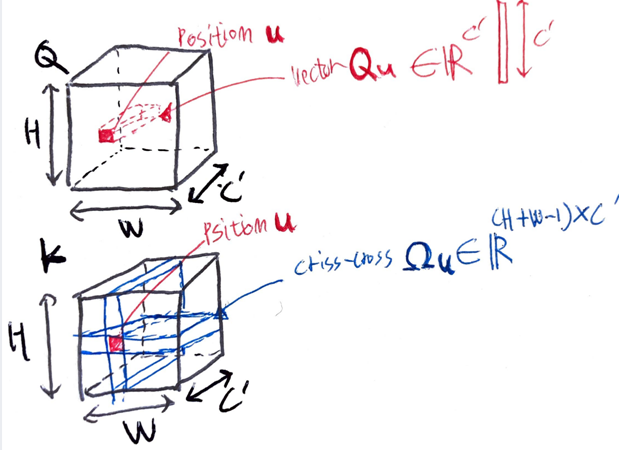 Position u
Q
vector Qu ∈ ℝ^C' C'
H
C'
W
Psition u
K
criss-cross Ωu ∈ ℝ^(H+W-1)×C'
H
C'
W